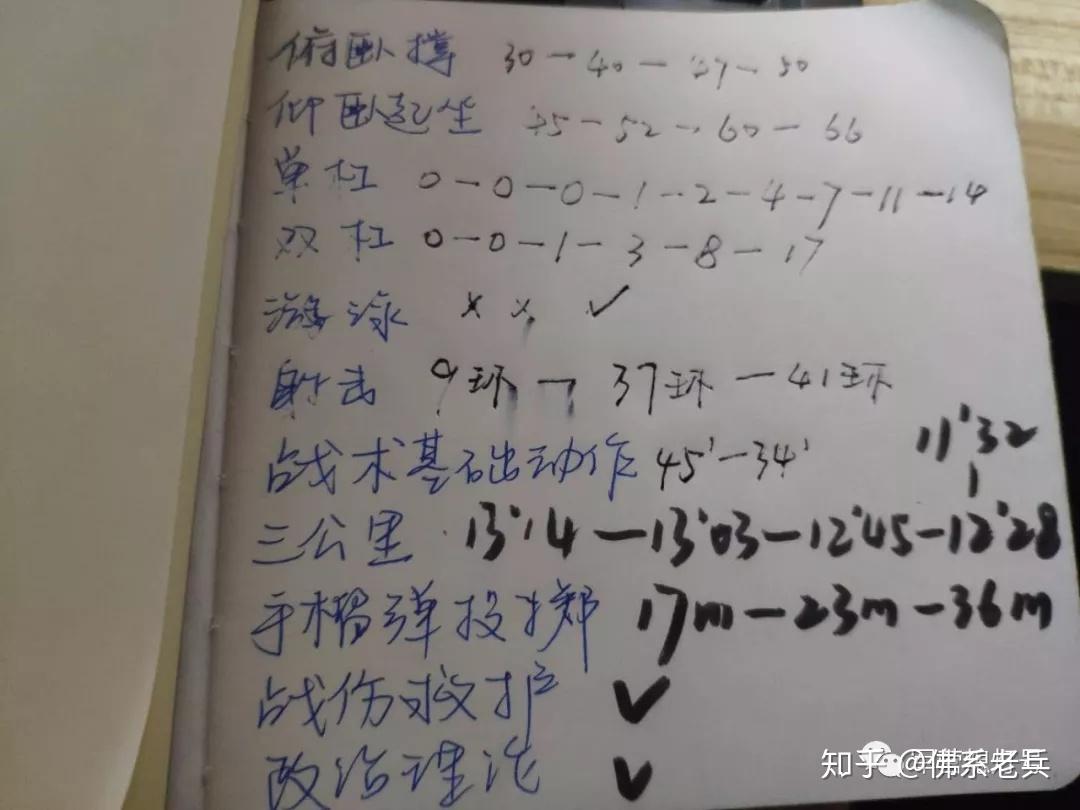 俯卧撑 30-40-47-50
仰卧起坐 45-52-60-66
单杠 0-0-0-1-2-4-7-11-14
双杠 0-0-1-3-8-17
游泳 × × ✓
射击 9环-37环-41环
11'32
战术基础动作 45'-34'
三公里 13'14-13'03-12'45-12'28
手榴弹投掷 17m-23m-36m
战伤救护 ✓
政治理论 ✓
知乎 @佛系老兵